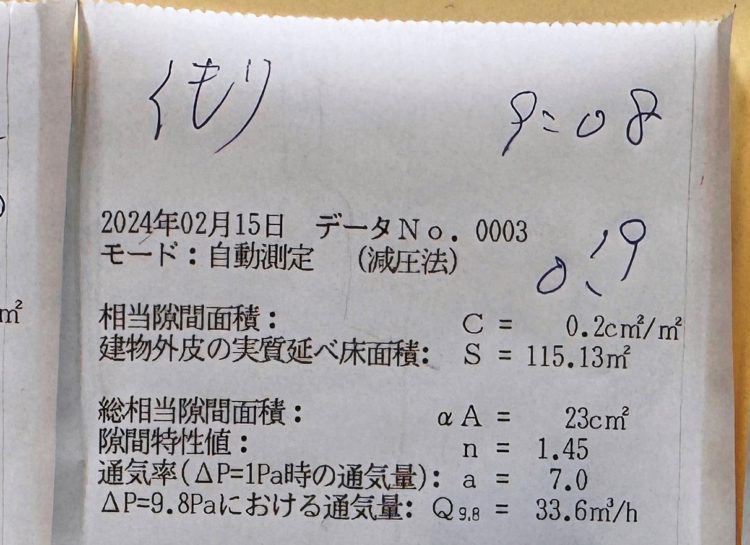 くもり 9:08
2024年02月15日 データNo. 0003
モード:自動測定 (減圧法)
0.19
相当隙間面積: C = 0.2cm²/m²
建物外皮の実質延べ床面積: S = 115.13m²
総相当隙間面積: αA = 23cm²
隙間特性値: n = 1.45
通気率(ΔP=1Pa時の通気量): a = 7.0
ΔP=9.8Paにおける通気量: Q9.8 = 33.6m³/h
m²